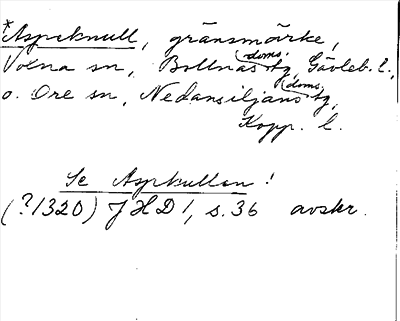 *Aspeknull, gränsmärke,
Voxna sn, Bollnäs doms. tg, Gävleb. l.,
o. Ore sn, Nedansiljans doms. tg,
Kopp. l.
Se Aspkullen!
(?1320) JHD 1, s. 36 avskr.